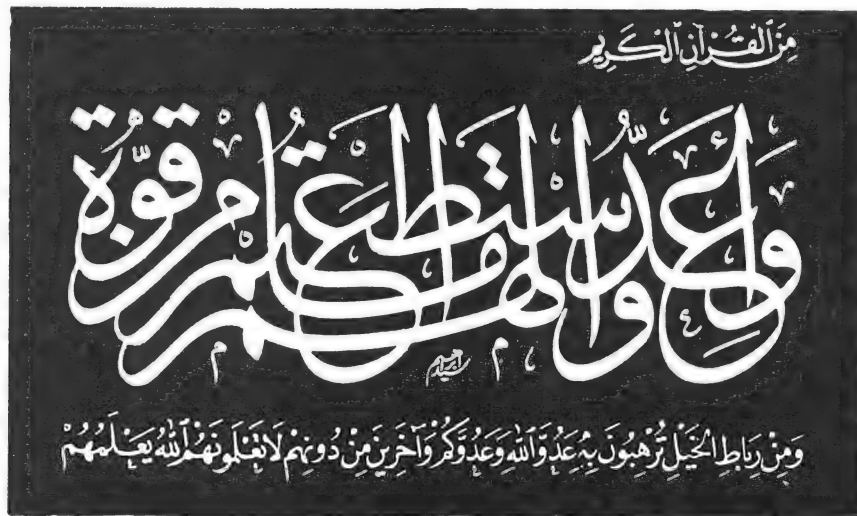 مِنَ ٱلْقُرْآنِ ٱلْكَرِيمِ
وَأَعِدُّوا لَهُمْ مَا اسْتَطَعْتُمْ مِنْ قُوَّةٍ
سيد ابراهيم
وَمِنْ رِبَاطِ الْخَيْلِ تُرْهِبُونَ بِهِ عَدُوَّ ٱللهِ وَعَدُوَّكُمْ وَآخَرِينَ مِنْ دُونِهِمْ لَا تَعْلَمُونَهُمُ ٱللهُ يَعْلَمُهُمْ